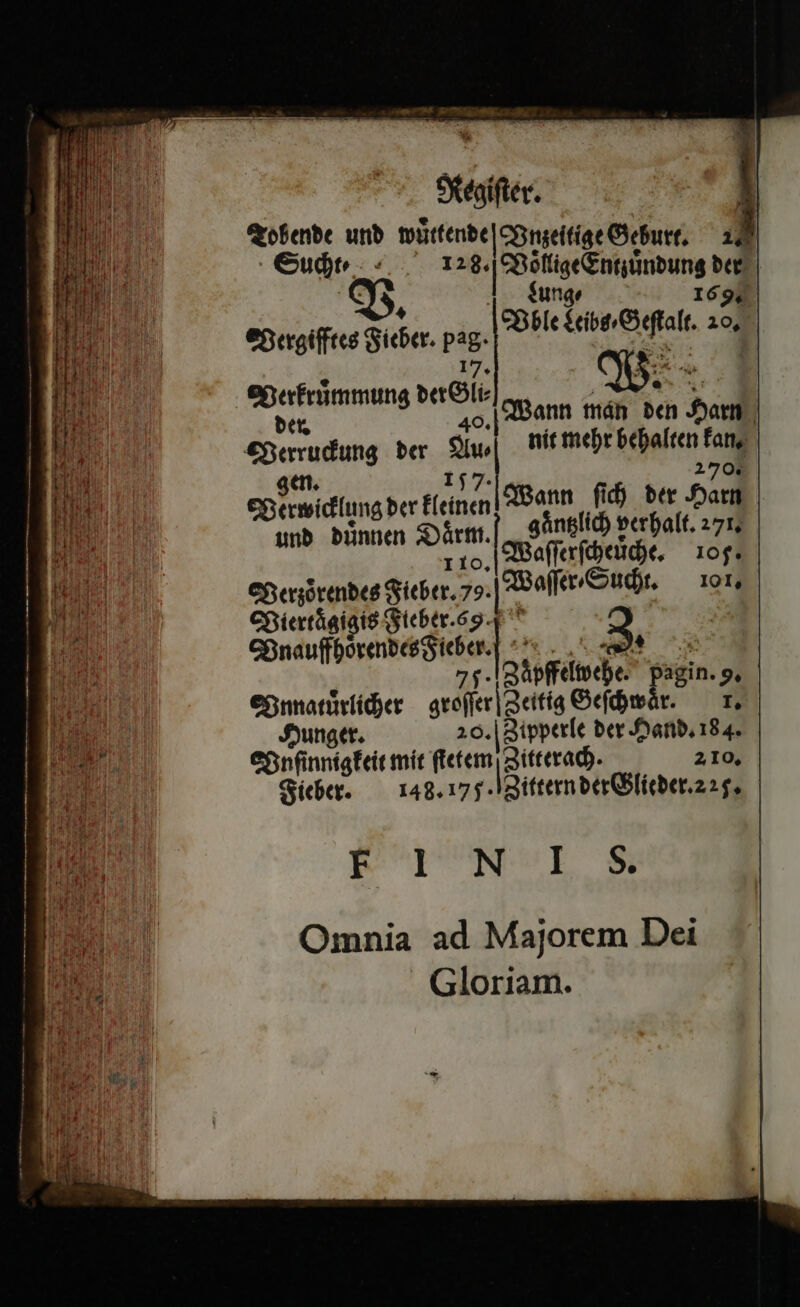 Regiſter.
Tobende und wuͤttende
Sucht⸗ 128.
V.
Vergifftes Fieber. pag.
17.
Verkruͤmmung der Gli⸗
der. 40.
Verruckung der Au⸗
gen. 157.
Verwicklung der kleinen
und duͤnnen Daͤrm.
110.
Verzoͤrendes Fieber. 79.
Viertaͤgigis Fieber. 69.
Vnauffhoͤrendes Fieber.
75.
Vnnatuͤrlicher groſſer
Hunger. 20.
Vnſinnigkeit mit ſtetem
Fieber. 148. 175.
Vnzeitige Geburt.
Voͤllige Entzuͤndung der
Lung⸗ 169.
Vble Leibs⸗Geſtalt. 20.
W.
Wann man den Harn
nit mehr behalten kan.
270.
Wann ſich der Harn
gaͤntzlich verhalt. 271.
Waſſerſcheuͤche. 105.
Waſſer⸗Sucht. 101.
Z.
Zaͤpffelwehe. pagin. 9.
Zeitig Geſchwaͤr. 1.
Zipperle der Hand. 184.
Zitterach. 210.
Zittern der Glieder. 225.
FINIS.
Omnia ad Majorem Dei
Gloriam.